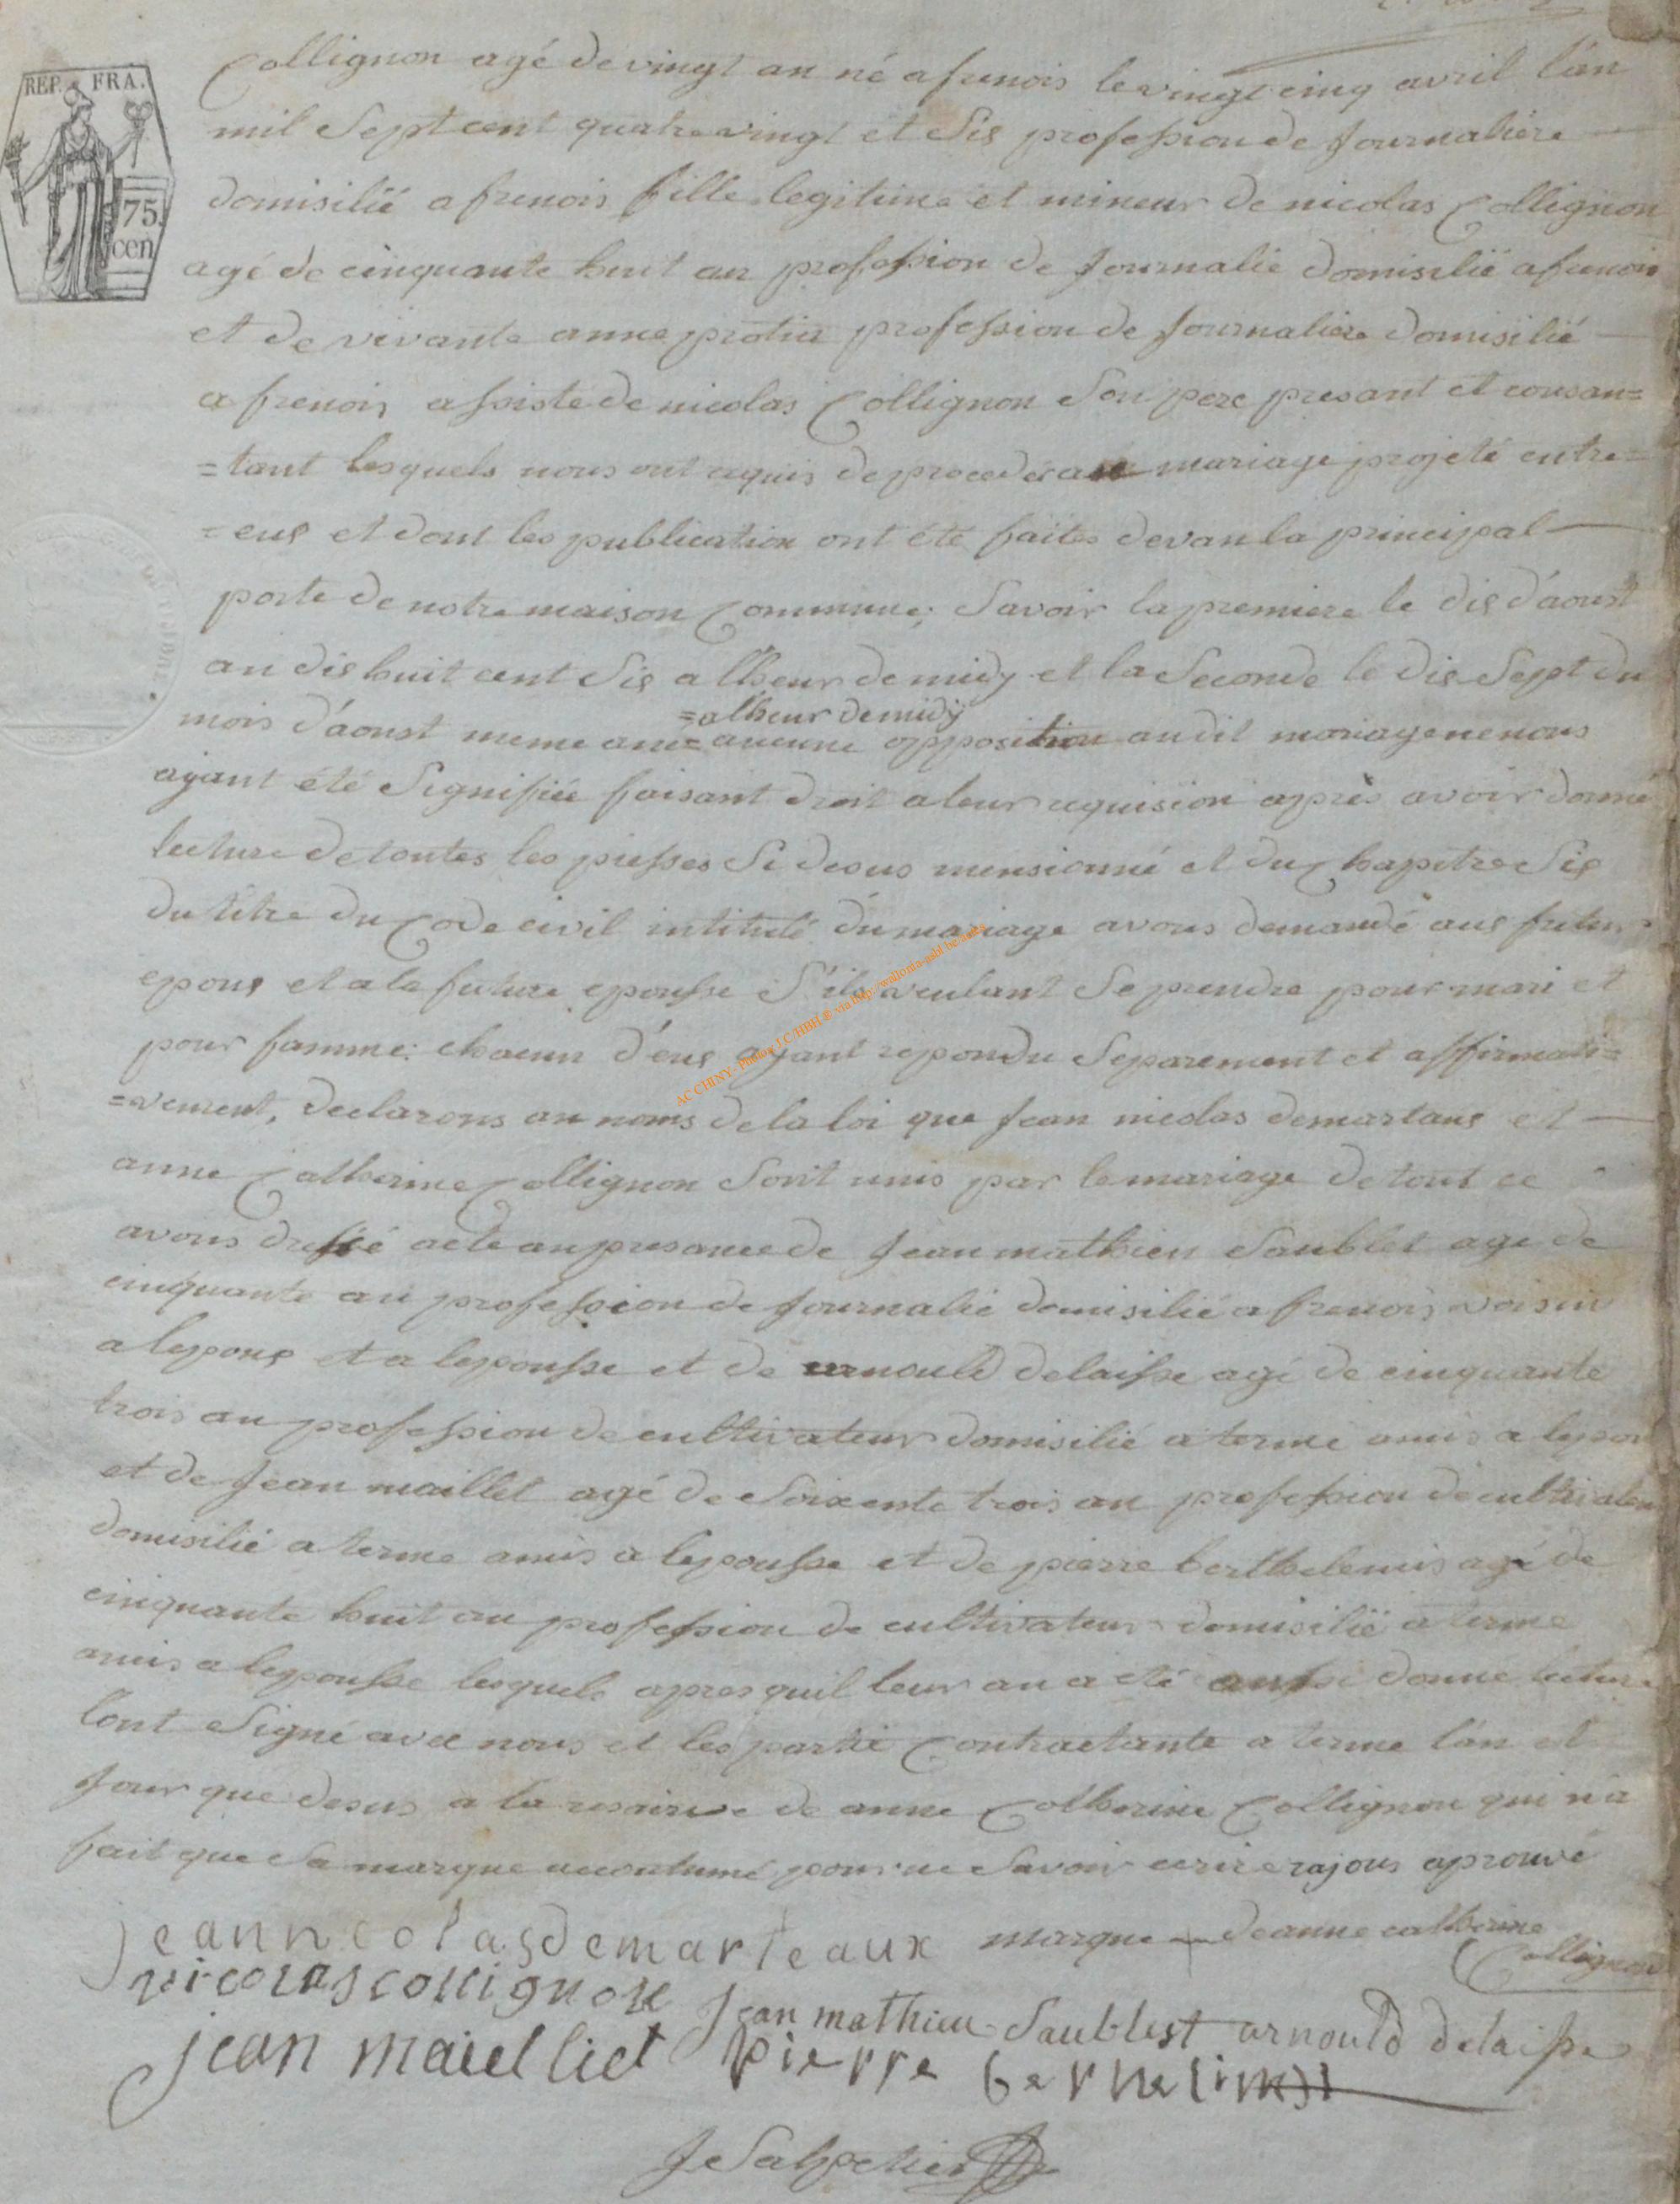 REP. FRA.
75.
cen
Collignon agé de vingt an né a frenois le vingt cinq avril l'an
mil Sept cent quatre vingt et Six profession de Journaliere
domisilié a frenois fille legitime et mineur de nicolas Collignon
agé de cinquante huit an profession de Journalié domisilié a frenois
et de vivante anne protin profession de Journaliere domisilié
a frenois assisté de nicolas Collignon Son pere presant et consan=
=tant lesquels nous ont requis de proceder au mariage projeté entre=
=eux et dont les publication ont été faites devan la principal
porte de notre maison Commune; Savoir la premiere le dix d'aoust
an dix huit cent Six a lheur de midy et la Seconde le dix Sept du
=alheur de midÿ
mois d'aoust meme ané= aucune opposition audit mariage ne nous
ayant été Signifiée faisant droit a leur requision après avoir donné
lecture de toutes les piesses Si desus mensionné et du Chapitre Six
du titre du Code civil intitulé du mariage avons demandé aux futur
epoux et a la future epousse S'ils veulant Se prendre pour mari et
pour famme: chacun d'eux ayant repondu Separement et affirmati=
=vement, declarons au noms de la loi que Jean nicolas demartaux et
anne Catherine Collignon Sont unis par le mariage de tout ce
avons dressé acte an presance de Jean mathieu Saublet age de
cinquante an profession de Journalié domisilié a frenois voisin
a lepoux et a lepousse et de arnould delaisse agé de cinquante
trois an profession de cultivateur domisilié a terme amis a lepou
et de Jean maillet agé de Soixente trois an profession de cultivateur
domisilié a terme amis a lepousse et de pierre berthelemis agé de
cinquante huit an profession de cultivateur domisilié a terme
amis a lepousse lesquels apres quil leur an a été aussi donné lecture
lont Signé avec nous et les partie Contractante a terme l'an et
Jour que desus a la reserve de anne Catherine Collignon qui n'a
fait que Sa marque accoutumé pour ne Savoir ecrire rajous aprouvé
jean nicolas demarteaux marque + deanne catherine
Collignon
nicolas collignon
Jean mathieu Saublest arnould delaisse
jean maielliet pierre
JSalpetier
AC CHINY - Photos J.C. HBH © via http://wallonia-asbl.be.users